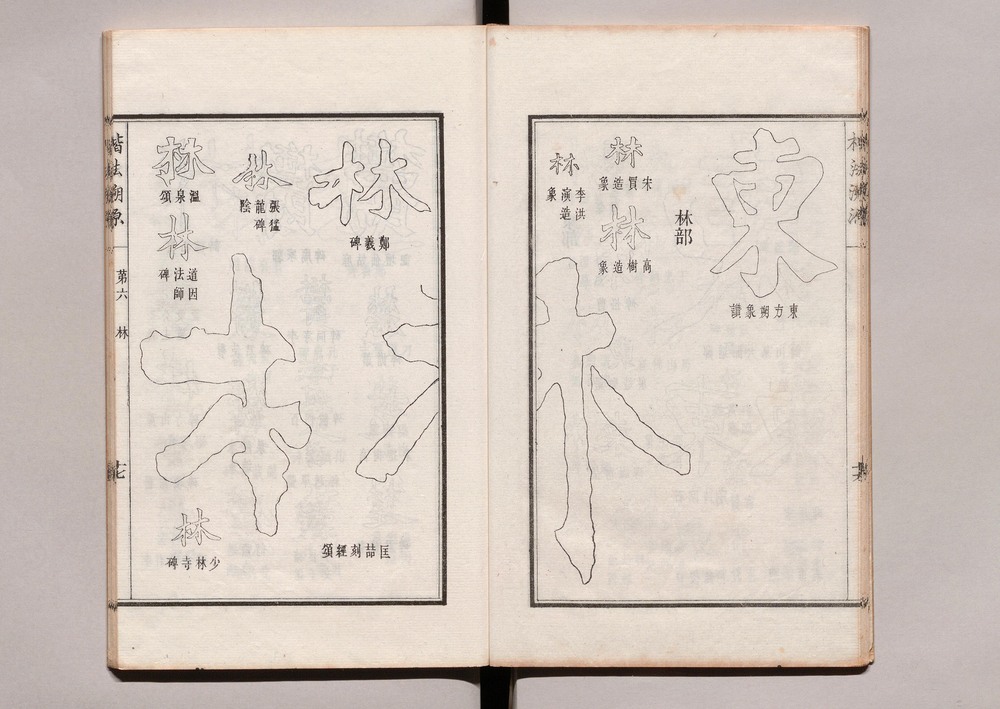 東
東方朔象讃
林部
林
宋買造象
林
高樹造象
林
李洪演造象
林
林
鄭羲碑
匡喆刻經頌
林
張猛龍碑陰
林
溫泉頌
林
道因法師碑
林
少林寺碑
楷法溯原
第六 林